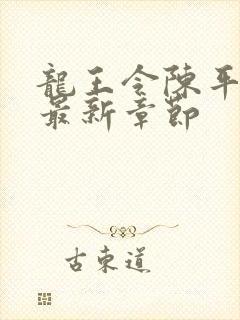 龍王令陳平
最新章節
古東道